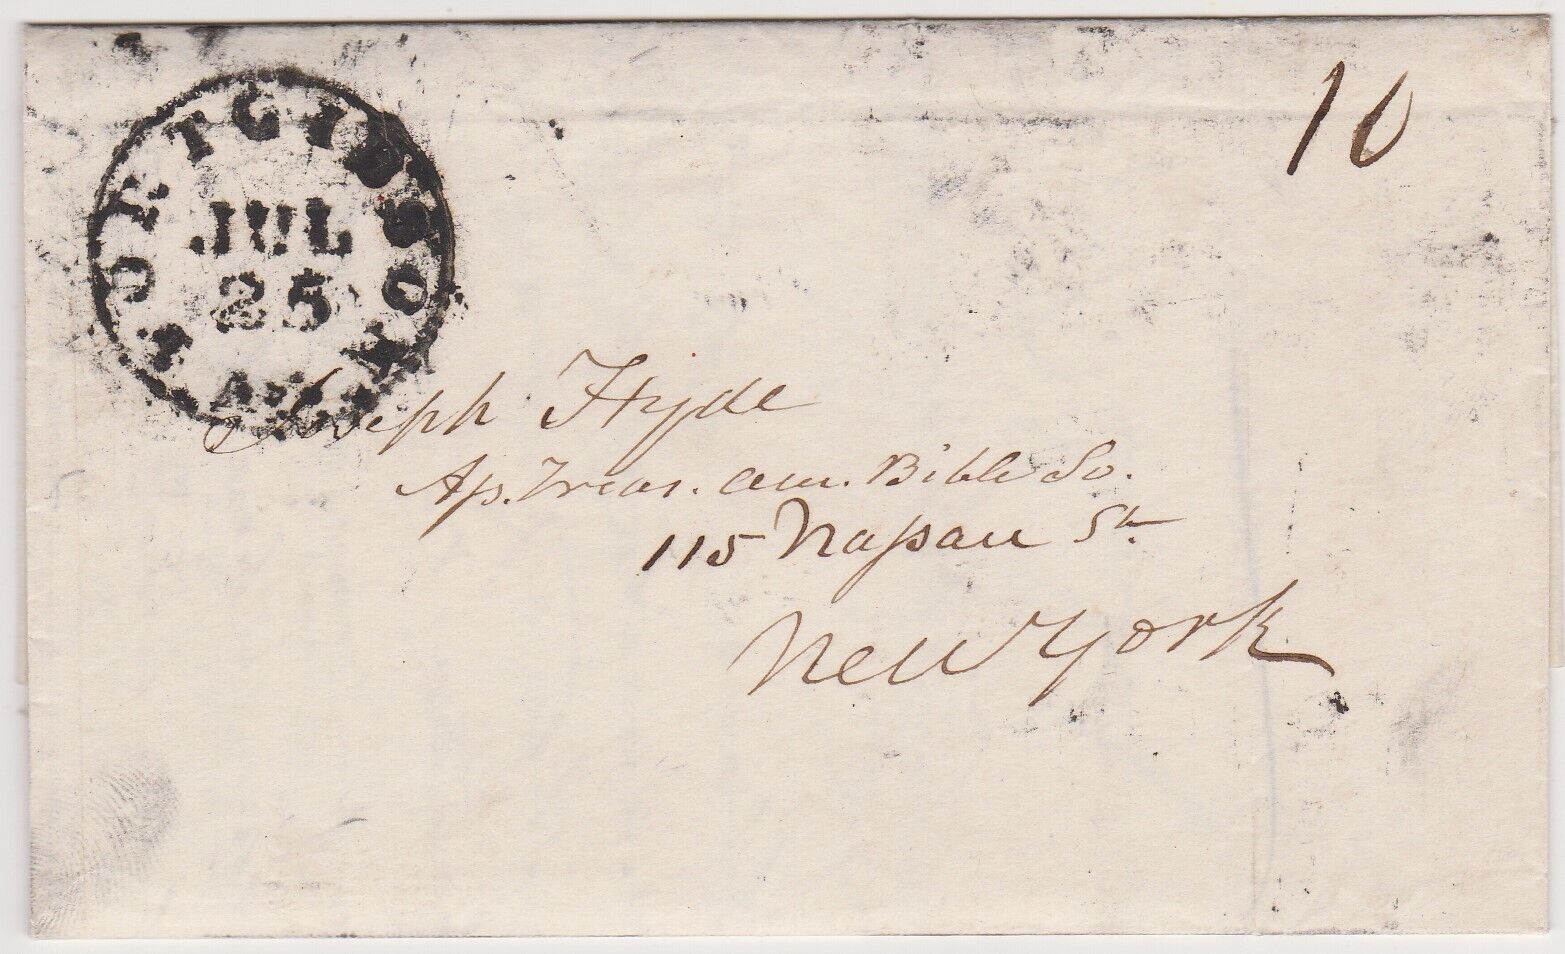 FORT GIBSON
JUL
25
ARK
10
Joseph Hyde
As. Treas. Am. Bible So.
115 Nassau St.
New York